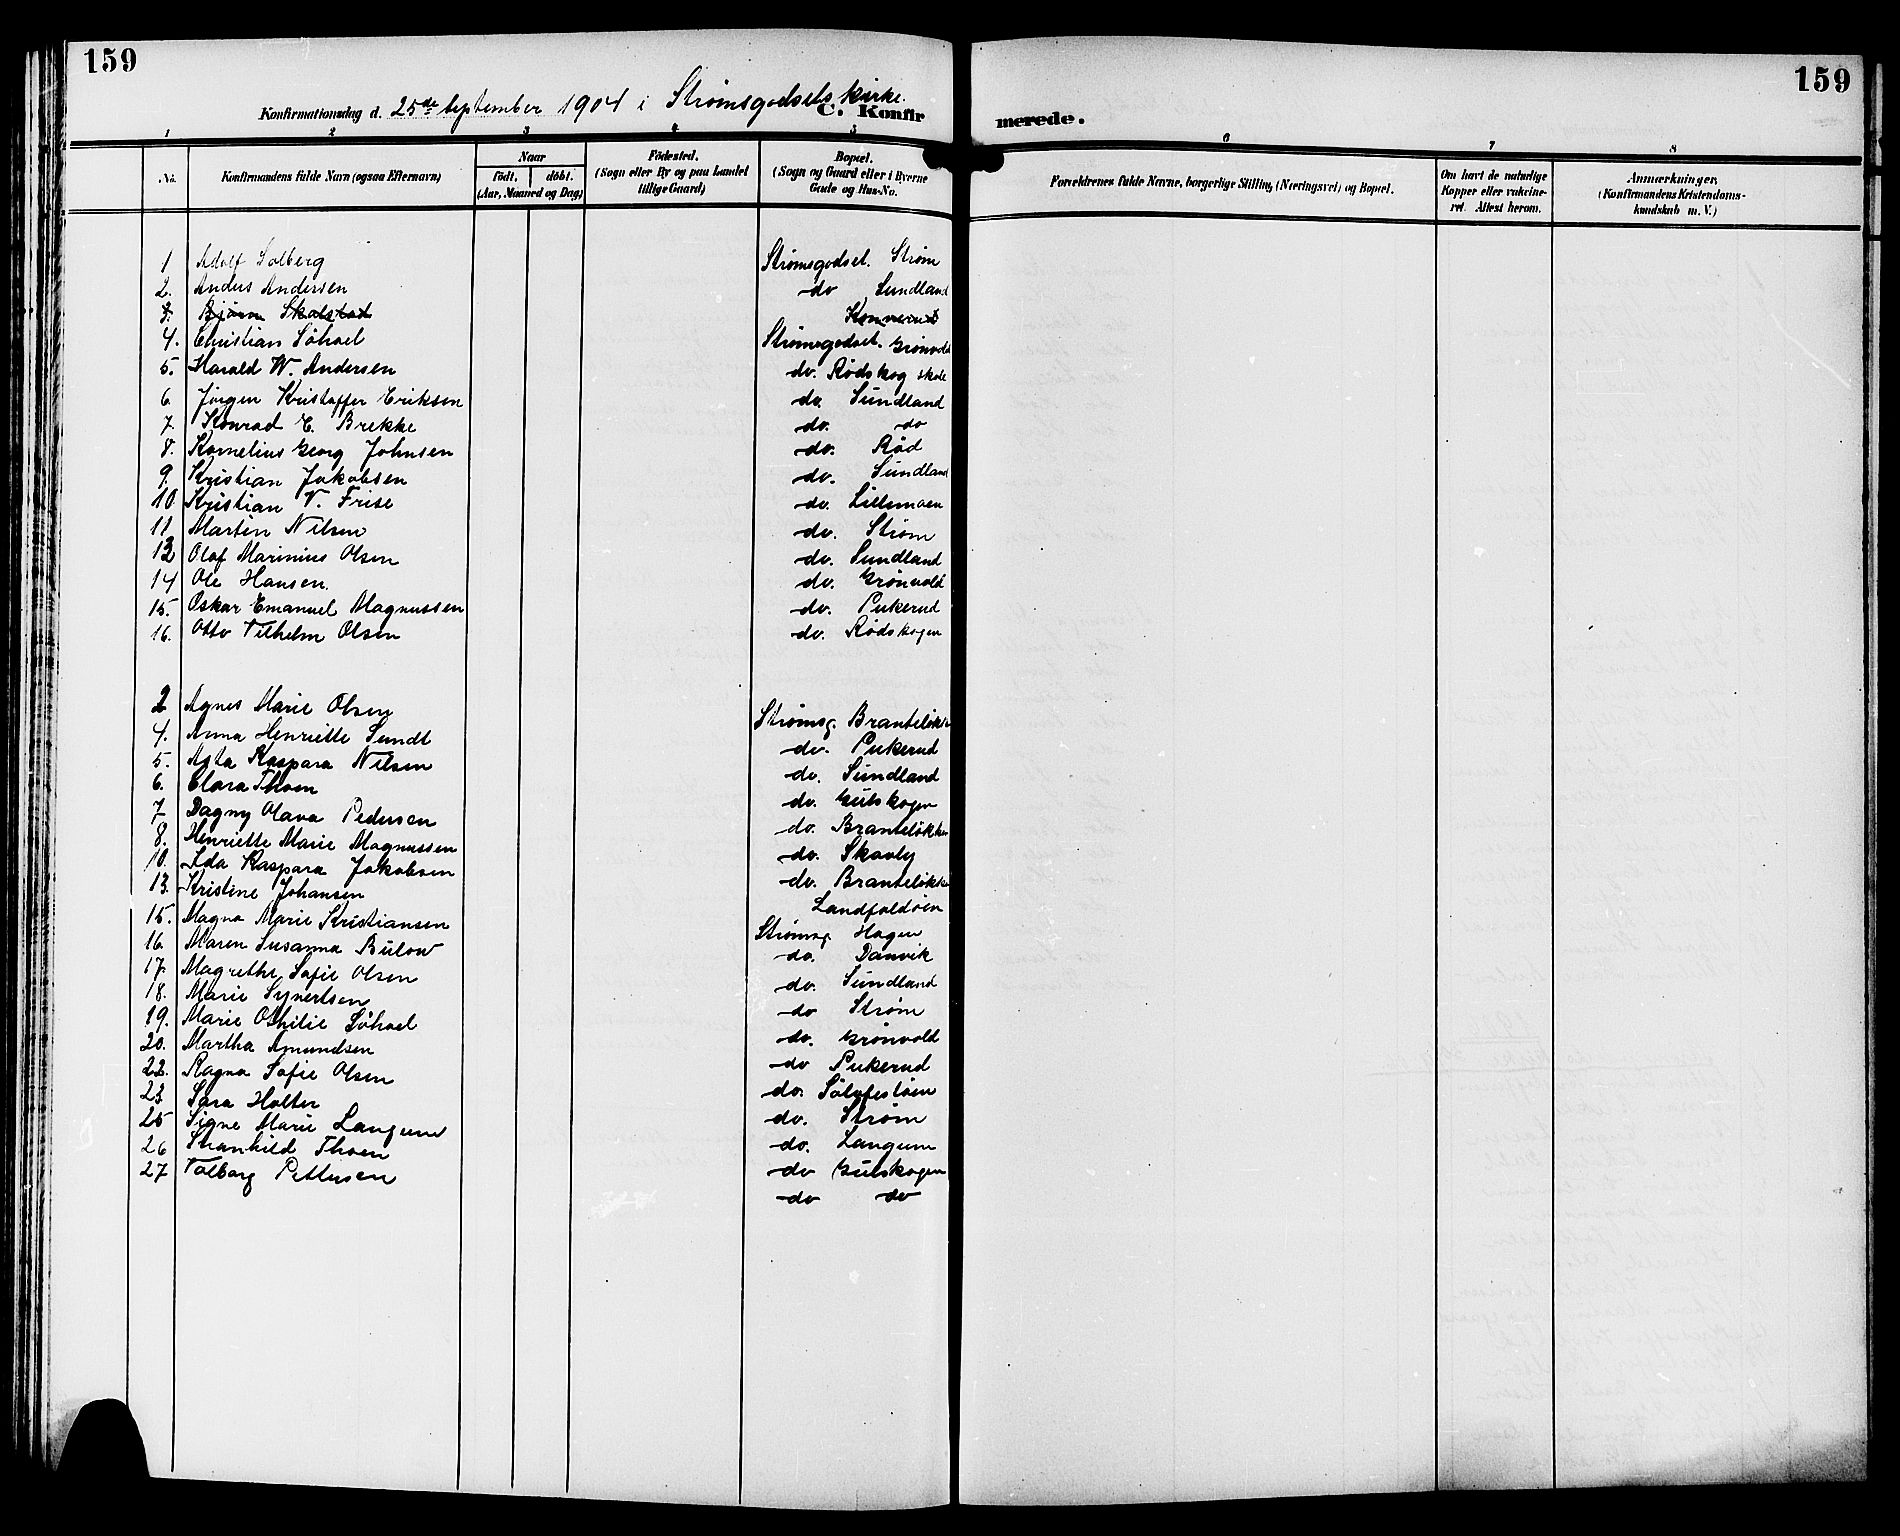 159
159
Konfirmationsdag d. 25de September 1904 i Strømsgodsets kirke.
C. Konfirmerede.
1 2 3 4 5 6 7 8
No. Konfirmandens fulde Navn (ogsaa Efternavn) Naar født. døbt. (Aar, Maaned og Dag) Fødested. (Sogn eller By og paa Landet tillige Gaard) Bopæl. (Sogn og Gaard eller i Byerne Gade og Hus-No. Forældrenes fulde Navne, borgerlige Stilling (Næringsvei) og Bopæl. Om havt de naturlige Kopper eller vakcineret. Attest herom. Anmærkninger, (Konfirmandens Kristendomskundskab m. V.)
1 Adolf Solberg Strømsgodset. Strøm
2. Anders Andersen do Sundland
3. Bjørn Skalstad Konnerud
4. Christian Söhoel Strømsgodset. Grønvold
5. Harald W. Andersen do. Rødskog skole
6. Jørgen Kristoffer Eriksen do. Sundland
7. Konrad E. Brekke do. do
8. Kornelius Georg Johnsen do. Rød
9. Kristian Jakobsen do. Sundland
10 Kristian V. Frise do. Lillemoen
11 Martin Nilsen do. Strøm
12 Olaf Marinius Olsen do. Sundland
14 Ole Hansen. do. Grønvold
15. Oskar Emanuel Magnussen do. Pukerud
16. Otto Vilhelm Olsen do. Rødskogen
2 Agnes Marie Olsen Strømsg. Branteløkk
4. Anna Henriette Sundt do. Pukerud
5. Asta Kaspara Nilsen do. Sundland
6. Clara Thoen do. Gulskogen
7 Dagny Olava Pedersen do. Branteløkken
8. Henriette Marie Magnussen do. Skavly
10. Ida Kaspara Jakobsen do. Branteløkk
13. Kristine Johansen Landfaldøen
15. Magna Marie Kristiansen Strømsg. Hagen
16. Maren Susanna Bülow do. Danvik
17. Magrethe Sofie Olsen do. Sundland
18. Marie Synertsen do Strøm
19. Marie Othilie Söhoel do. Grønvold
20. Martha Amundsen do Pukerud
22. Ragna Sofie Olsen do. Sølvfestøen
23 Sara Holter do. Strøm
25 Signe Marie Langum do. Langum
26 Svanhild Thoen do Gulskogen
27 Valborg Pettersen do do